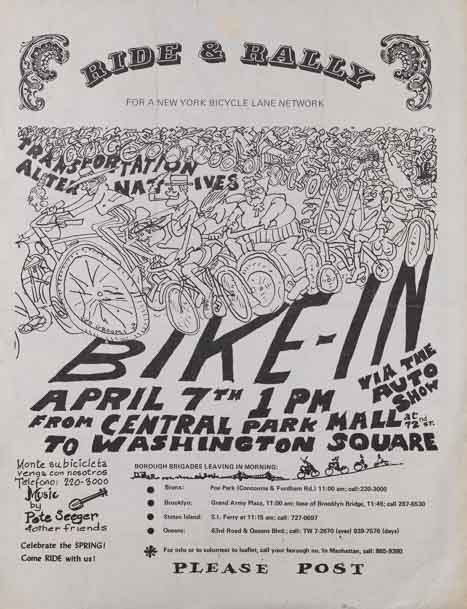 RIDE & RALLY
FOR A NEW YORK BICYCLE LANE NETWORK
TRANSPORTATION
ALTERNATIVES
BIKE-IN
APRIL 7TH 1 PM
VIA THE
AUTO
SHOW
FROM CENTRAL PARK MALL at 72nd ST.
TO WASHINGTON SQUARE
Monte su bicicleta
venga con nosotros
Telefono: 220-3000
Music
by
Pete Seeger
& other friends
Celebrate the SPRING!
Come RIDE with us!
BOROUGH BRIGADES LEAVING IN MORNING:
Bronx: Poe Park (Concourse & Fordham Rd.) 11:00 am; call: 220-3000
Brooklyn: Grand Army Plaza, 11:00 am; base of Brooklyn Bridge, 11:45; call 287-6530
Staten Island: S.I. Ferry at 11:15 am; call: 727-0097
Queens: 63rd Road & Queens Blvd.; call: TW 7-2670 (eves) 939-7576 (days)
For info or to volunteer to leaflet, call your borough no. In Manhattan, call: 865-9380
PLEASE POST